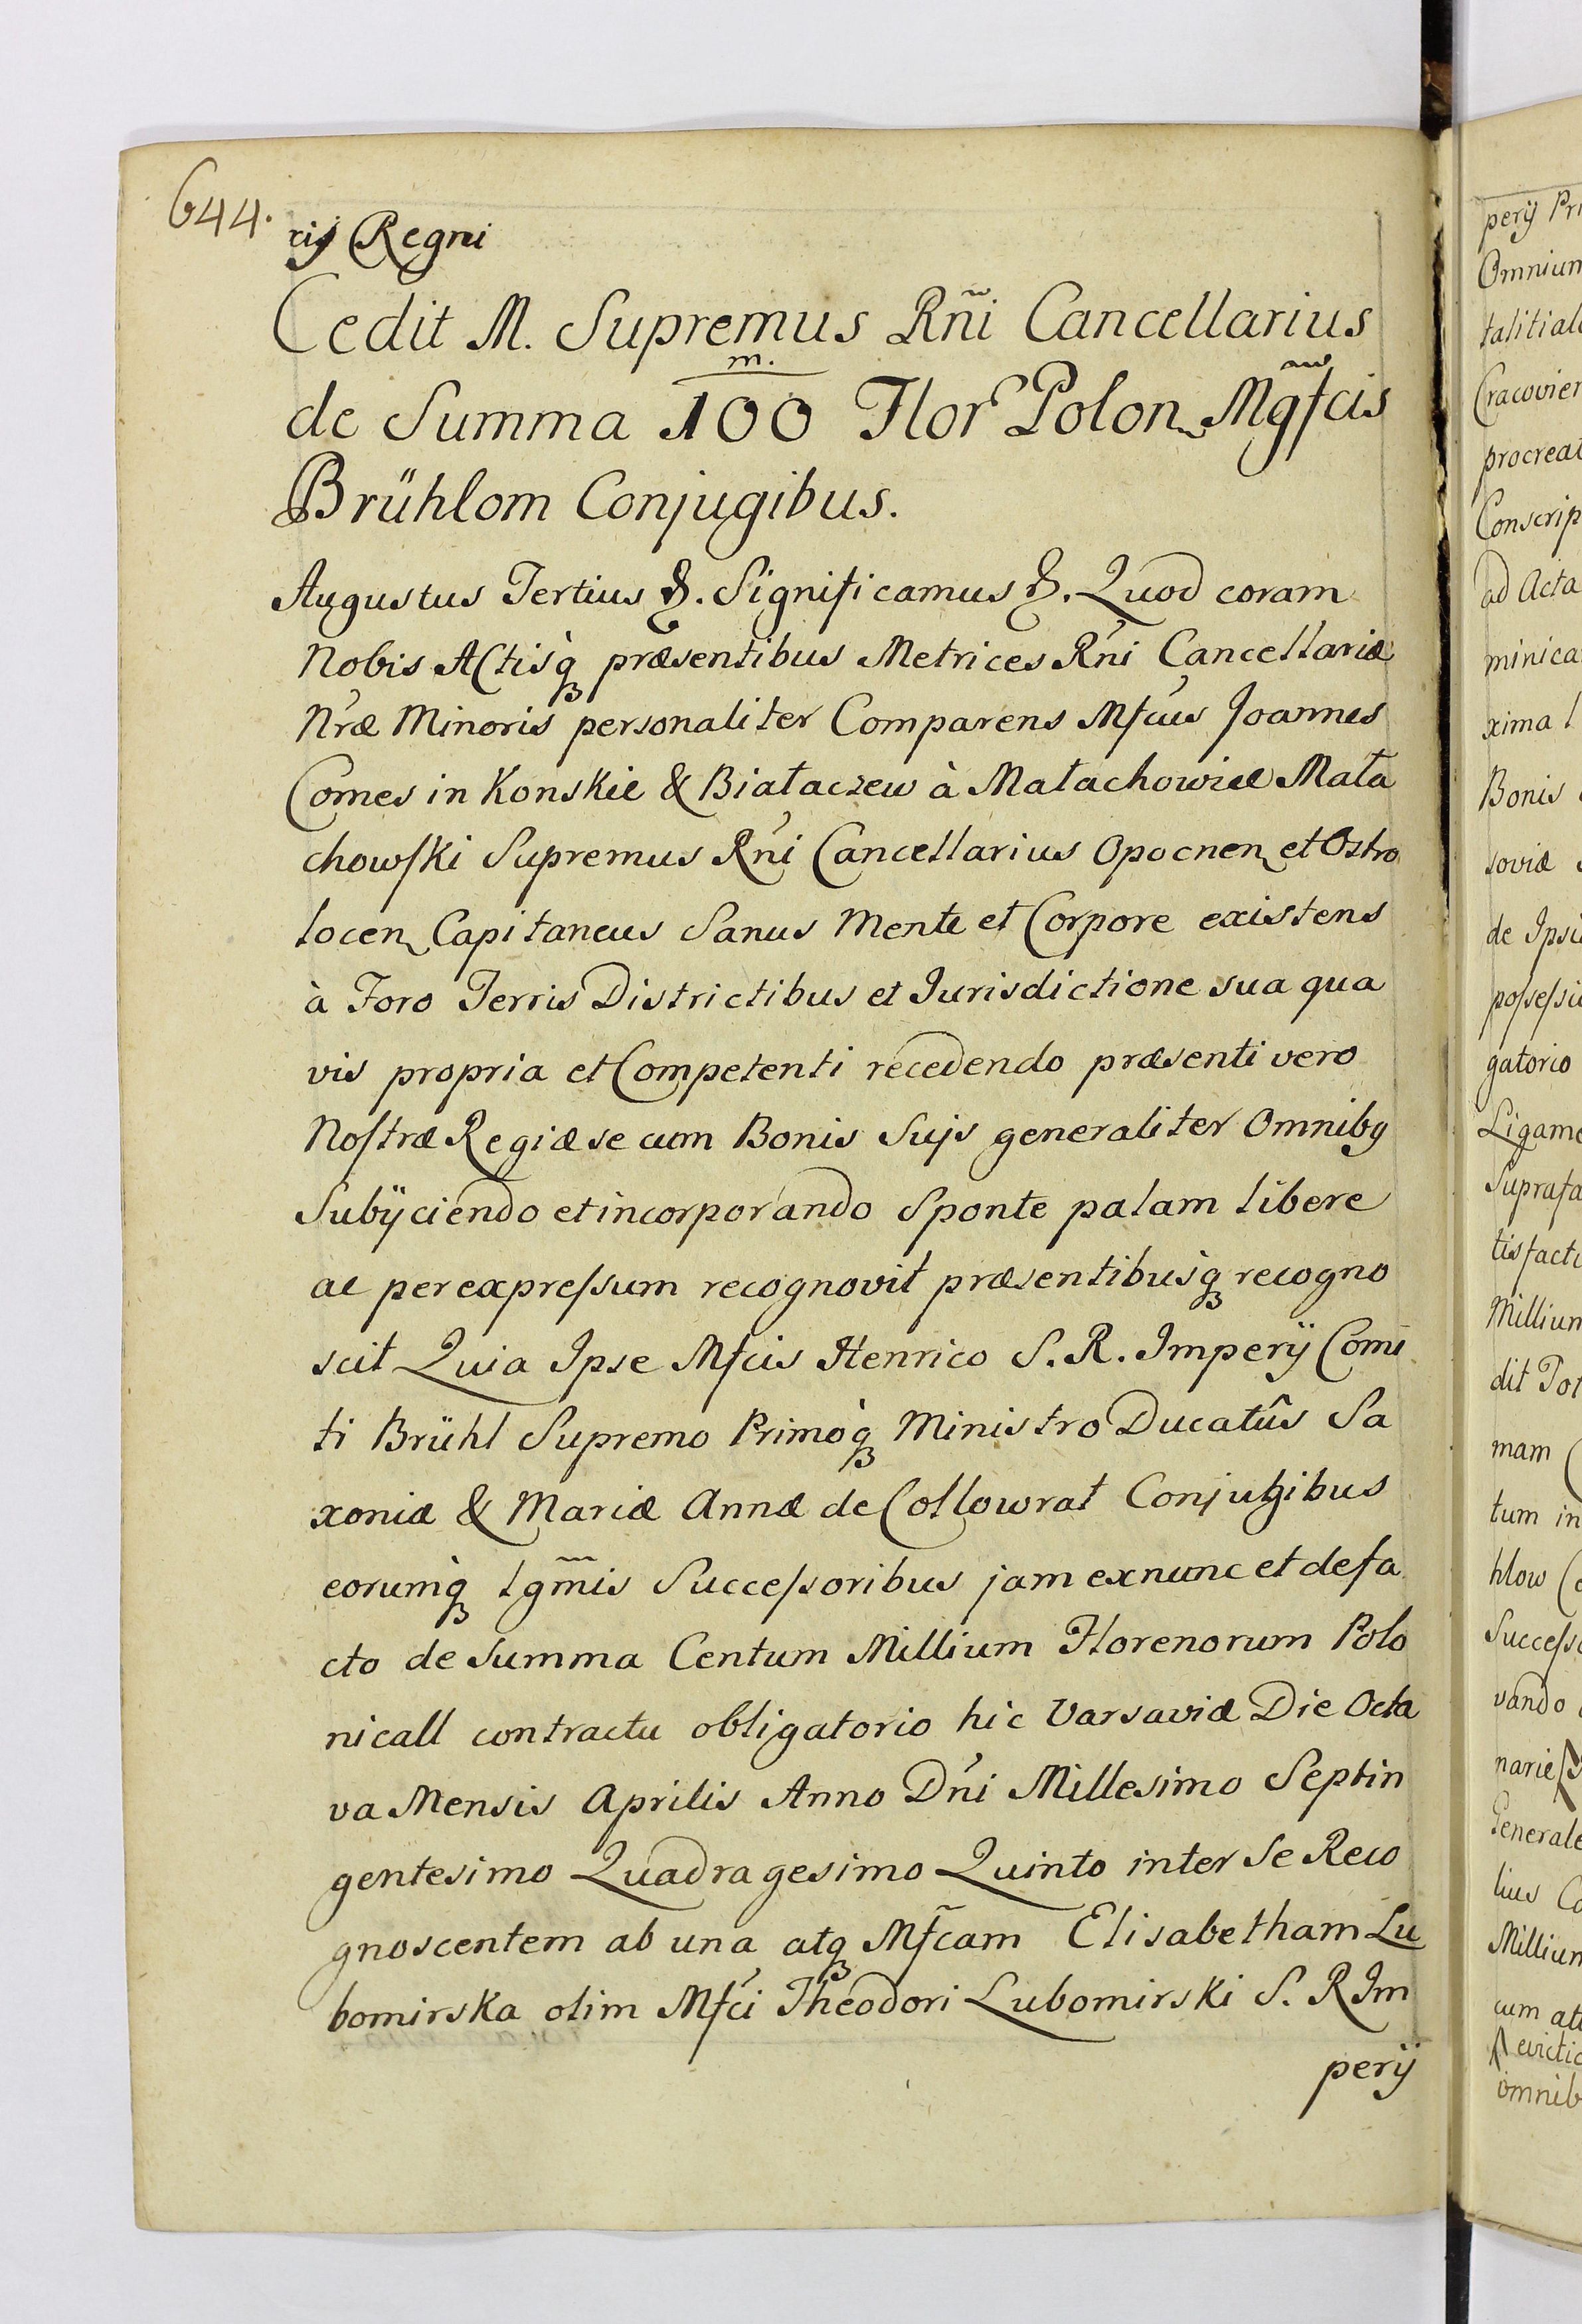 644.
rijs Regni
Cedit M. Supremus Rñi Cancellarius
m.
de Summa 100 Flor Polon Mgfcis
Brühlom Conjugibus.
Augustus Tertius &. Significamus &. Quod coram
Nobis Actisq præsentibus Metrices Rńi Cancellariæ
Nŕæ Minoris personaliter Comparens Mfcus Joannes
Comes in Konskie & Białaczew à Małachowice Mała
chowski Supremus Rńi Cancellarius Opocnen et Ostro
locen Capitaneus Sanus Mente et Corpore existens
à Foro Terris Districtibus et Jurisdictione sua qua
vis propria et Competenti recedendo præsenti vero
Nostræ Regiæ se cum Bonis Suis generaliter Omnibq
Subijciendo et incorporando Sponte palam libere
ac per expressum recognovit præsentibusq recogno
scit Quia Ipse Mfcis Henrico S. R. Imperÿ Comi
ti Brühl Supremo Primoq Ministro Ducatûs Sa
xoniæ & Mariæ Annæ de Collowrat Conjugibus
eorumq lgm̃is Successoribus jam ex nunc et de fa
cto de Summa Centum Millium Florenorum Polo
nicall contractu obligatorio hic Varsaviæ Die Octa
va Mensis Aprilis Anno Dńi Millesimo Septin
gentesimo Quadragesimo Quinto inter Se Reco
gnoscentem ab una atq Mfcam Elisabetham Lu
bomirska olim Mfci Theodori Lubomirski S. R Im
perÿ
perÿ
Omnium
talitial
Cracovien
procreat
Conscrip
ad Acta
minica
xima
Bonis
soviæ
de Ipsi
possessi
gatorio
Ligame
Suprafa
tisfacti
Millium
dit
mam
tum in
hlow
Successo
vando
narie
Generale
lius
Millium
cum
evictio
omnib